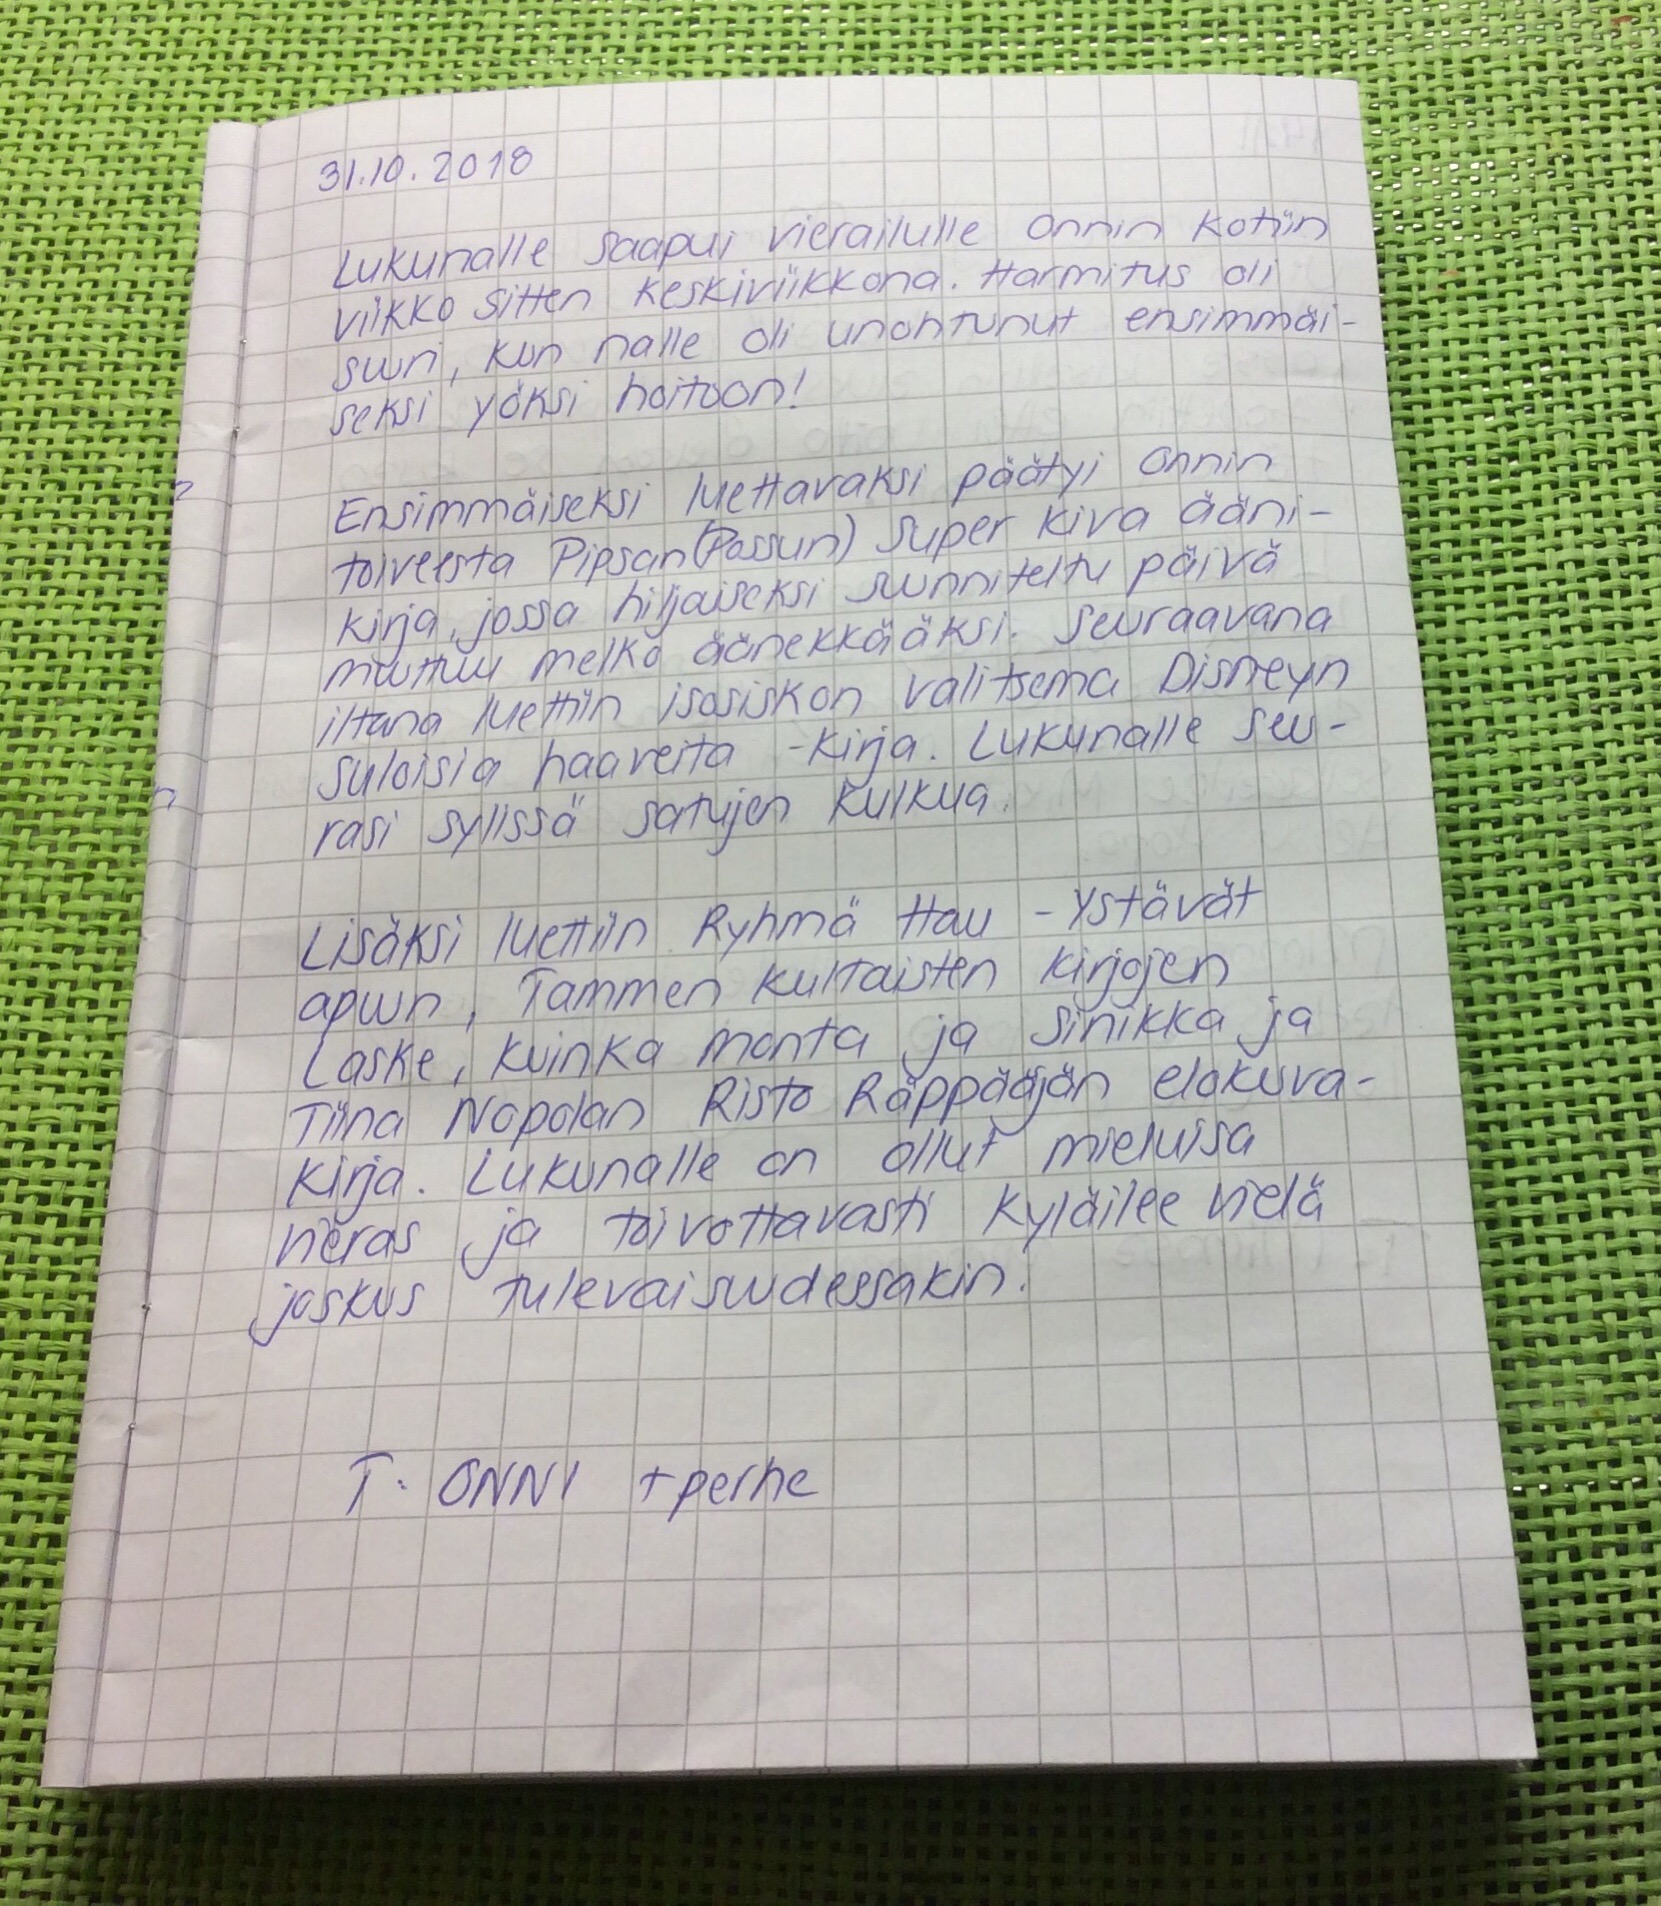 31.10.2018
Lukunalle saapui vierailulle Onnin kotiin
viikko sitten keskiviikkona. Harmitus oli
suuri, kun nalle oli unohtunut ensimmäi-
seksi yöksi hoitoon!
Ensimmäiseksi luettavaksi päätyi Onnin
toiveesta Pipsan (Possun) Super kiva ääni-
kirja, jossa hiljaiseksi suunniteltu päivä
muuttuu melko äänekkääksi. Seuraavana
iltana luettiin isosiskon valitsema Disneyn
suloisia haaveita -kirja. Lukunalle seu-
rasi sylissä satujen kulkua.
Lisäksi luettiin Ryhmä Hau - Ystävät
apuun, Tammen kultaisten kirjojen
Laske, kuinka monta ja Sinikka ja
Tiina Nopolan Risto Räppääjän elokuva-
kirja. Lukunalle on ollut mieluisa
vieras ja toivottavasti kyläilee vielä
joskus tulevaisuudessakin.
T. ONNI + perhe